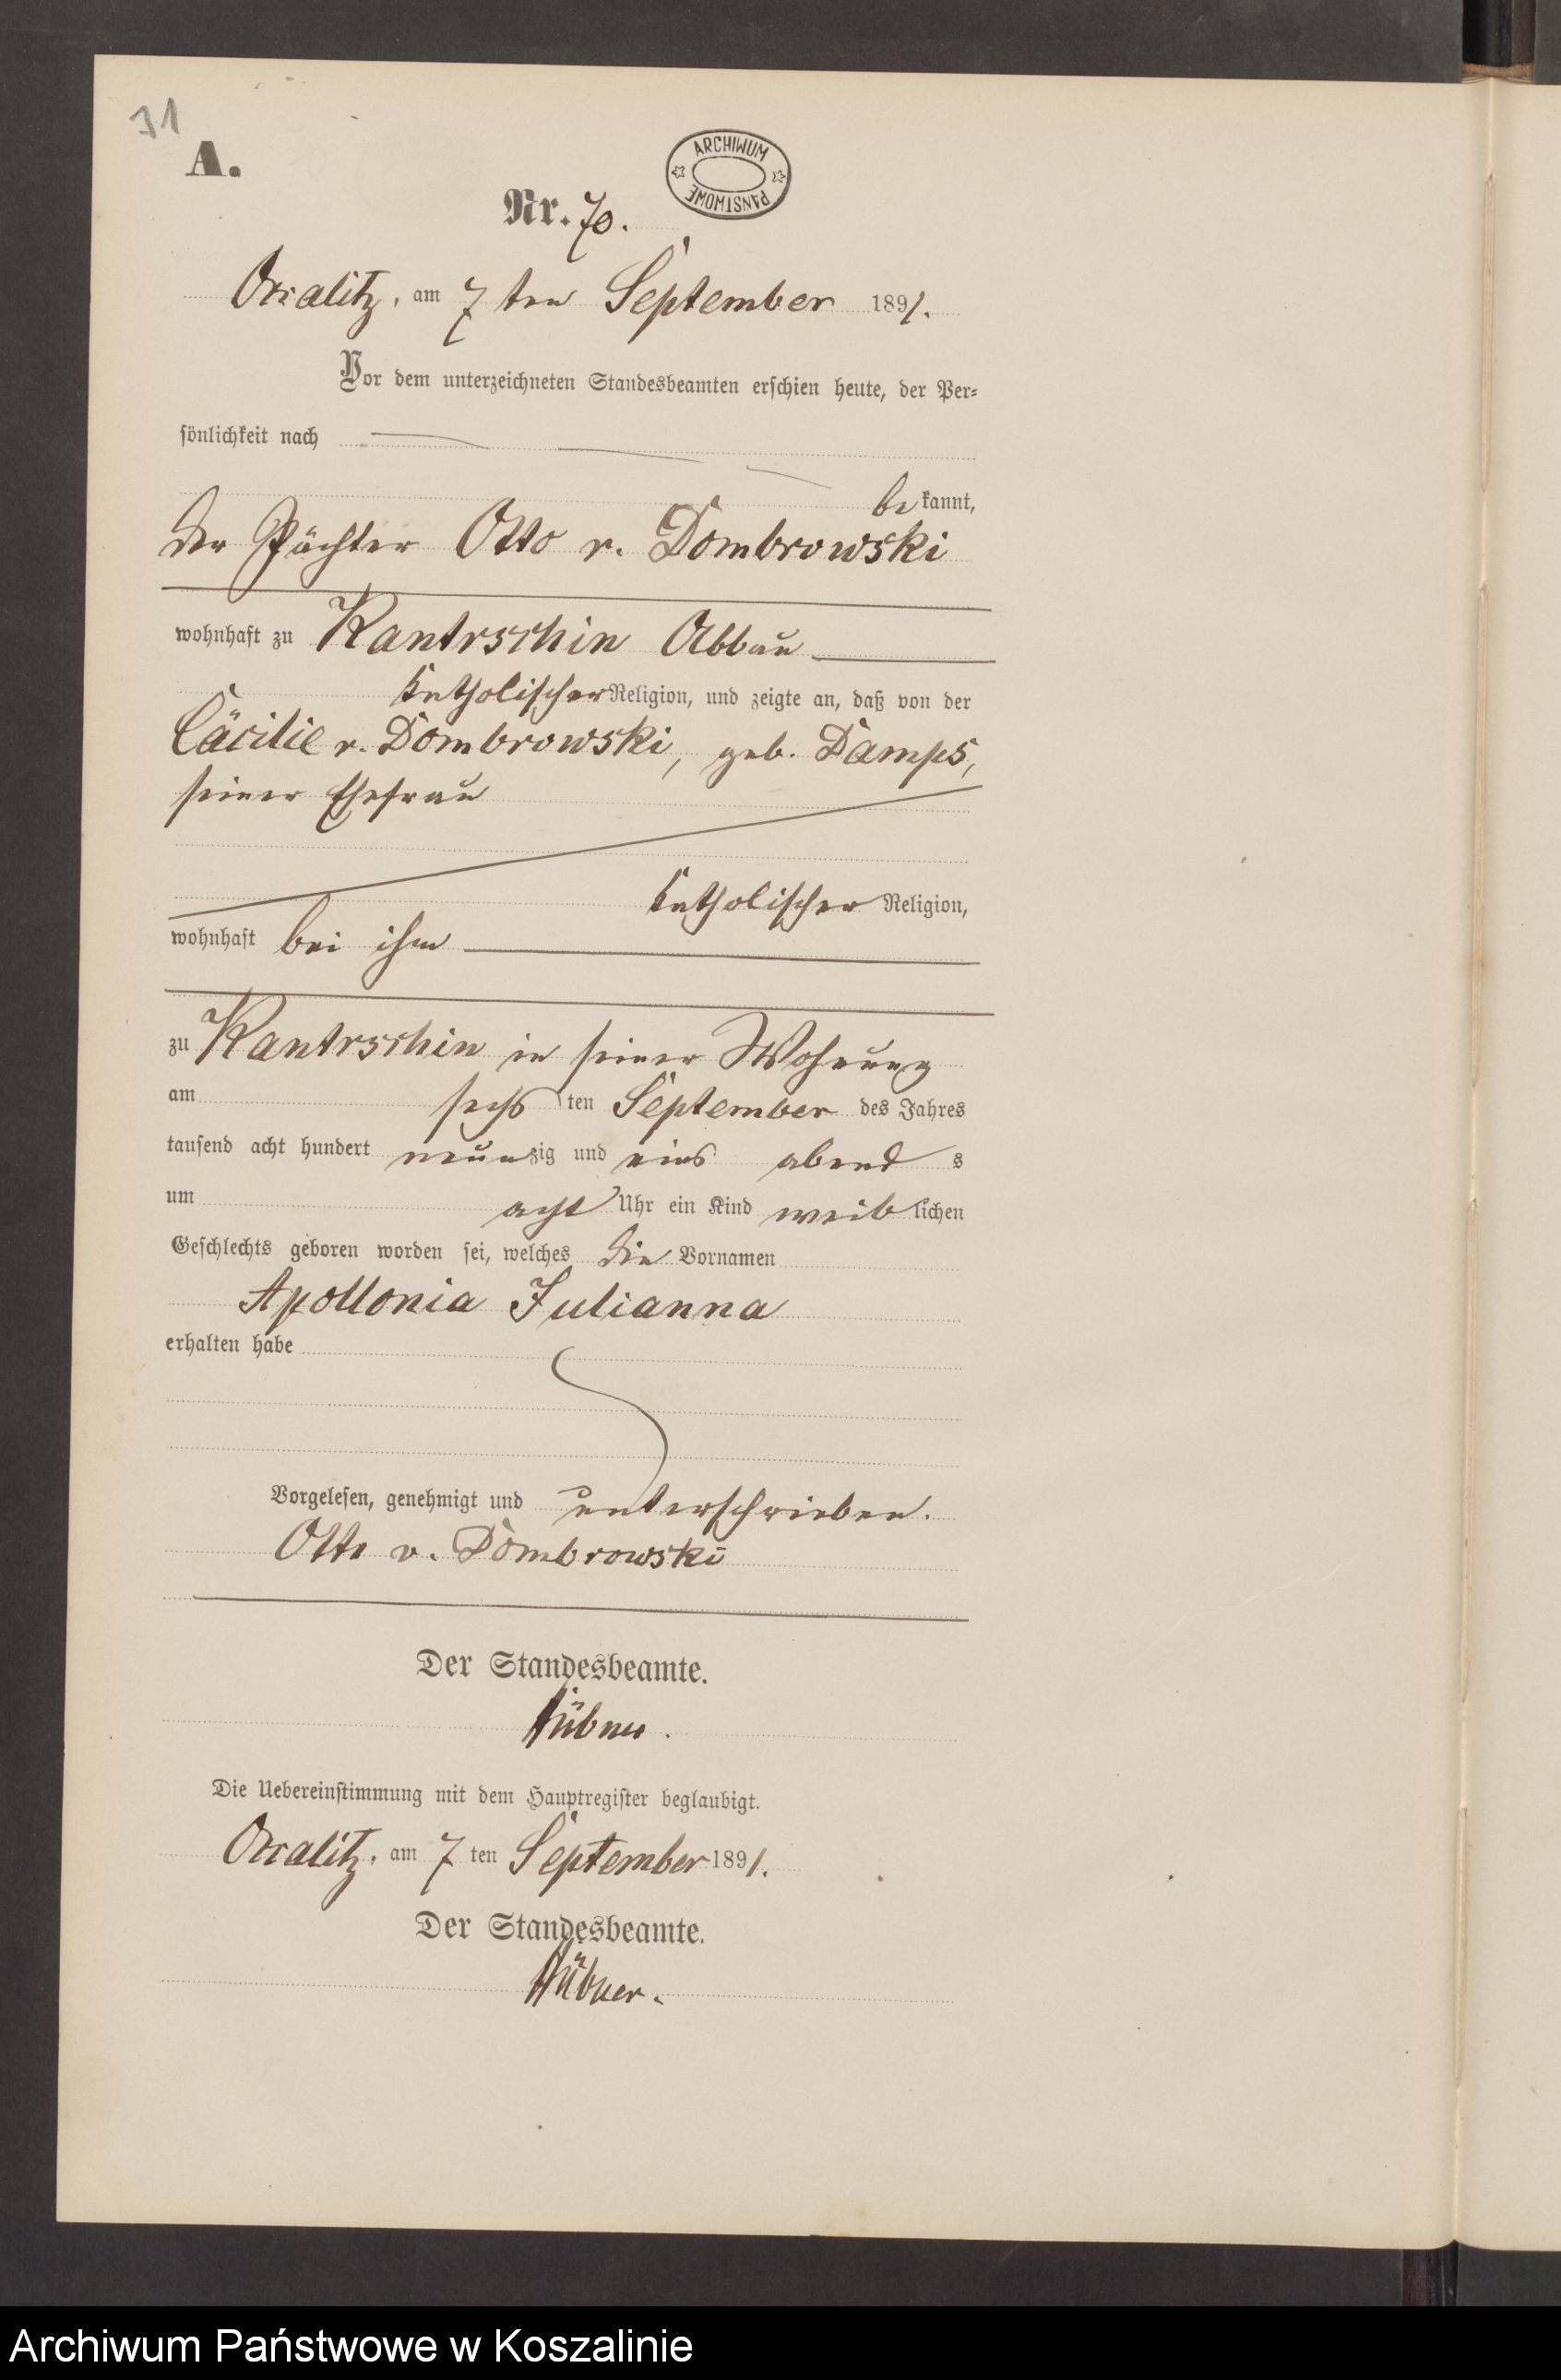 31
A.
ARCHIWUM PAŃSTWOWE
Nr. 70.
Occalitz, am 7 ten September 1891.
Vor dem unterzeichneten Standesbeamten erschien heute, der Per-
sönlichkeit nach
be kannt,
der Pächter Otto v. Dombrowski
wohnhaft zu Kantrschin Abbau
katholischer Religion, und zeigte an, daß von der
Cäcilie v. Dombrowski, geb. Damps,
seiner Ehefrau
katholischer Religion,
wohnhaft bei ihm
zu Kantrschin in seiner Wohnung
am sechs ten September des Jahres
tausend acht hundert neunzig und eins abend s
um acht Uhr ein Kind weib lichen
Geschlechts geboren worden sei, welches die Vornamen
Apollonia Julianna
erhalten habe
Vorgelesen, genehmigt und unterschrieben.
Otto v. Dombrowski
Der Standesbeamte.
Hübner.
Die Uebereinstimmung mit dem Hauptregister beglaubigt.
Occalitz, am 7 ten September 1891.
Der Standesbeamte.
Hübner.
Archiwum Państwowe w Koszalinie